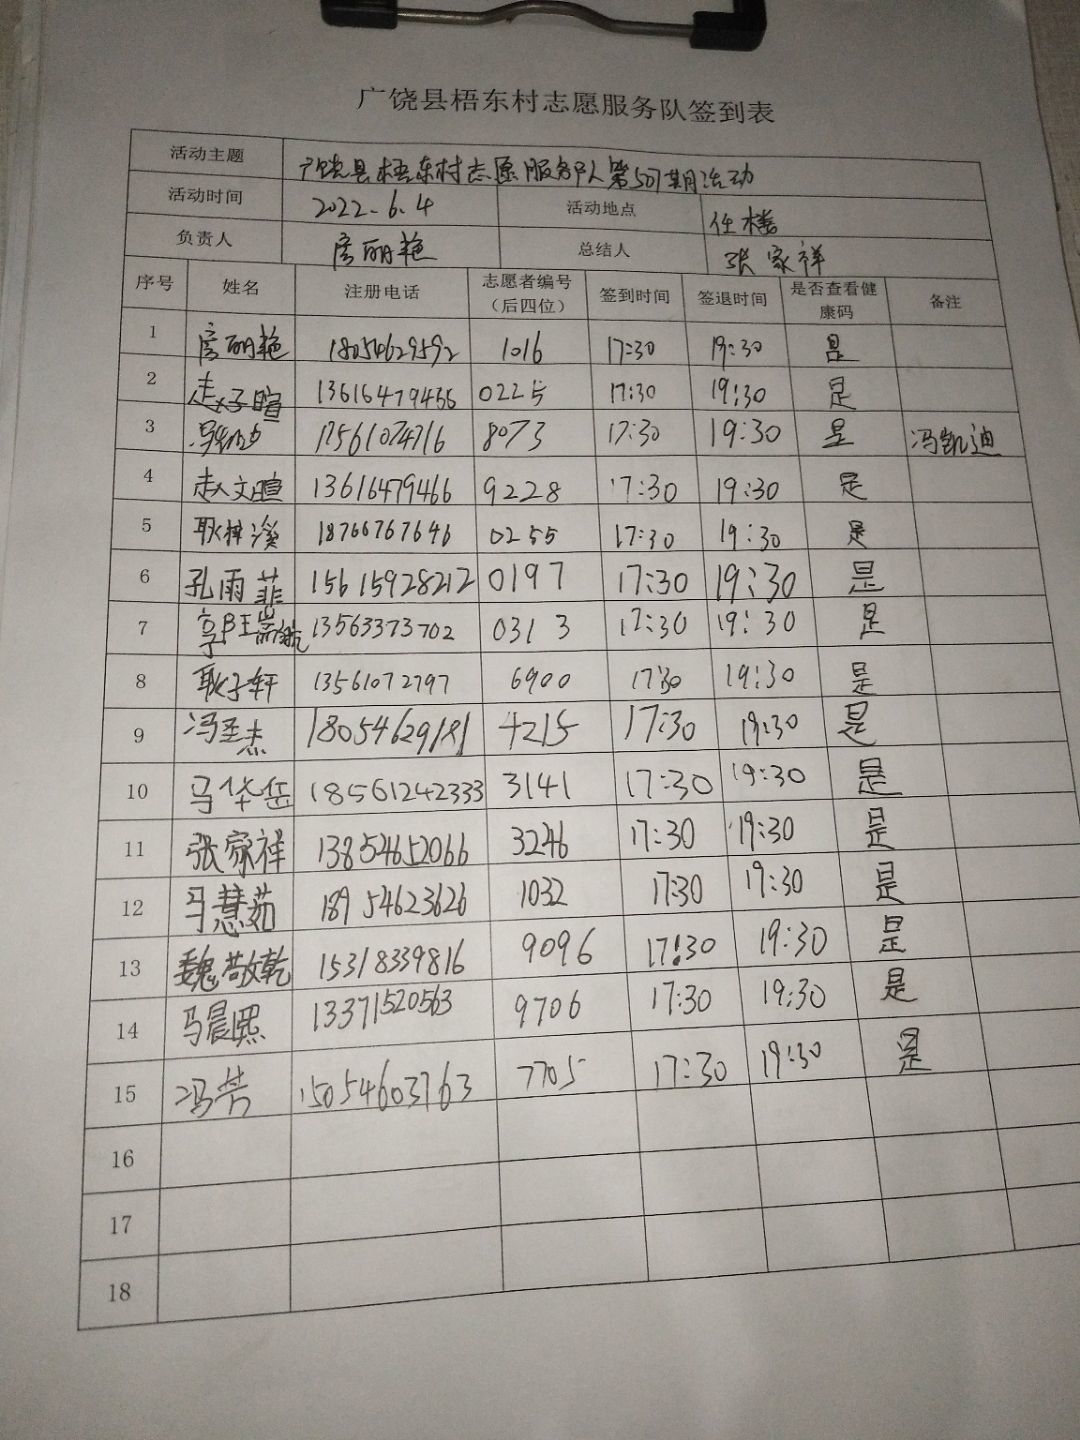 广饶县梧东村志愿服务队签到表
活动主题 广饶县梧东村志愿服务队第507期活动
活动时间 2022.6.4 活动地点 任楼
负责人 房丽艳 总结人 张家祥
序号 姓名 注册电话 志愿者编号（后四位） 签到时间 签退时间 是否查看健康码 备注
1 房丽艳 18054629592 1016 17:30 19:30 是
2 赵子暄 13616479466 0225 17:30 19:30 是
3 17561074716 8073 17:30 19:30 是 冯凯迪
4 赵文暄 13616479466 9228 17:30 19:30 是
5 耿梓溪 18766767646 0255 17:30 19:30 是
6 孔雨菲 15615928212 0197 17:30 19:30 是
7 13563373702 0313 17:30 19:30 是
8 耿子轩 13561072797 6900 17:30 19:30 是
9 冯圣杰 18054629181 4215 17:30 19:30 是
10 马华岳 18561242333 3141 17:30 19:30 是
11 张家祥 13854652066 3246 17:30 19:30 是
12 马慧茹 18954623626 1032 17:30 19:30 是
13 魏敬乾 15318339816 9096 17:30 19:30 是
14 马晨熙 13371520563 9706 17:30 19:30 是
15 冯芳 15054603763 7705 17:30 19:30 是
16
17
18